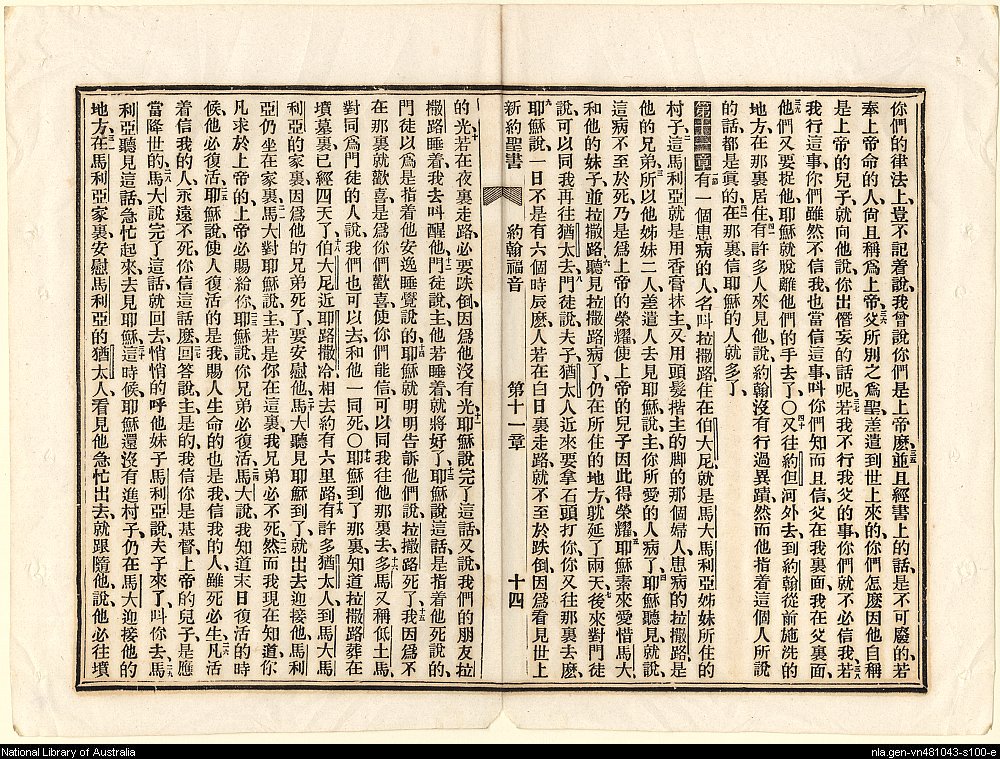 你們的律法上、豈不記着說、我曾說你們是上帝麼、三五並且經書上的話、是不可廢的、若
奉上帝命的人、尙且稱爲上帝、三六父所別之爲聖、差遣到世上來的、你們怎麼因他自稱
是上帝的兒子、就向他說、你出僭妄的話呢、三七若我不行我父的事、你們就不必信我、三八若
我行這事、你們雖然不信我、也當信這事、叫你們知而且信、父在我裏面、我在父裏面、
三九他們又要捉他、耶穌就脫離他們的手去了、〇四十又往約但河外去、到約翰從前施洗的
地方、在那裏居住、四一有許多人來見他、說、約翰沒有行過異蹟、然而他指着這個人所說
的話、都是眞的、四二在那裏信耶穌的人就多了、
第十一章一有一個患病的人、名叫拉撒路、住在伯大尼、就是馬大馬利亞姊妹所住的
村子、二這馬利亞就是用香膏抹主、又用頭髮揩主的脚的那個婦人、患病的拉撒路、是
他的兄弟、三所以他姊妹二人、差遣人去見耶穌說、主、你所愛的人病了、四耶穌聽見就說、
這病不至於死、乃是爲上帝的榮耀、使上帝的兒子因此得榮耀、五耶穌素來愛惜馬大
和他的妹子、並拉撒路、六聽見拉撒路病了、仍在所住的地方、躭延了兩天、七後來對門徒
說、可以同我再往猶太去、八門徒說、夫子、猶太人近來要拿石頭打你、你又往那裏去麼、
九耶穌說、一日不是有六個時辰麼、人若在白日裏走路、就不至於跌倒、因爲看見世上
新約聖書 約翰福音 第十一章 十四
的光、十若在夜裏走路、必要跌倒、因爲他沒有光、十一耶穌說完了這話、又說、我們的朋友拉
撒路睡着、我去叫醒他、十二門徒說、主、他若睡着、就將好了、十三耶穌說這話、是指着他死說的、
門徒以爲是指着他安逸睡覺說的、十四耶穌就明明告訴他們說、拉撒路死了、十五我因爲不
在那裏就歡喜、是爲你們歡喜、使你們能信、可以同我往他那裏去、十六多馬又稱低土馬、
對同爲門徒的人說、我們也可以去和他一同死、〇十七耶穌到了那裏、知道拉撒路葬在
墳墓裏、已經四天了、十八伯大尼近耶路撒冷、相去約有六里路、十九有許多猶太人到馬大馬
利亞的家裏、因爲他的兄弟死了、要安慰他、二十馬大聽見耶穌到了、就出去迎接他、馬利
亞仍坐在家裏、二一馬大對耶穌說、主若是你在這裏、我兄弟必不死、二二然而我現在知道、你
凡求於上帝的、上帝必賜給你、二三耶穌說、你兄弟必復活、二四馬大說、我知道末日復活的時
候、他必復活、二五耶穌說、使人復活的是我、賜人生命的也是我、信我的人、雖死必生、二六凡活
着信我的人、永遠不死、你信這話麼、二七回答說、主、是的、我信你是基督、上帝的兒子、是應
當降世的、二八馬大說完了這話、就回去悄悄的呼他妹子馬利亞說、夫子來了、叫你去、二九馬
利亞聽見這話、急忙起來、去見耶穌、三十這時候耶穌還沒有進村子、仍在馬大迎接他的
地方、三一在馬利亞家裏安慰馬利亞的猶太人、看見他急忙出去、就跟隨他、說他必往墳
National Library of Australia
nla.gen-vn481043-s100-e